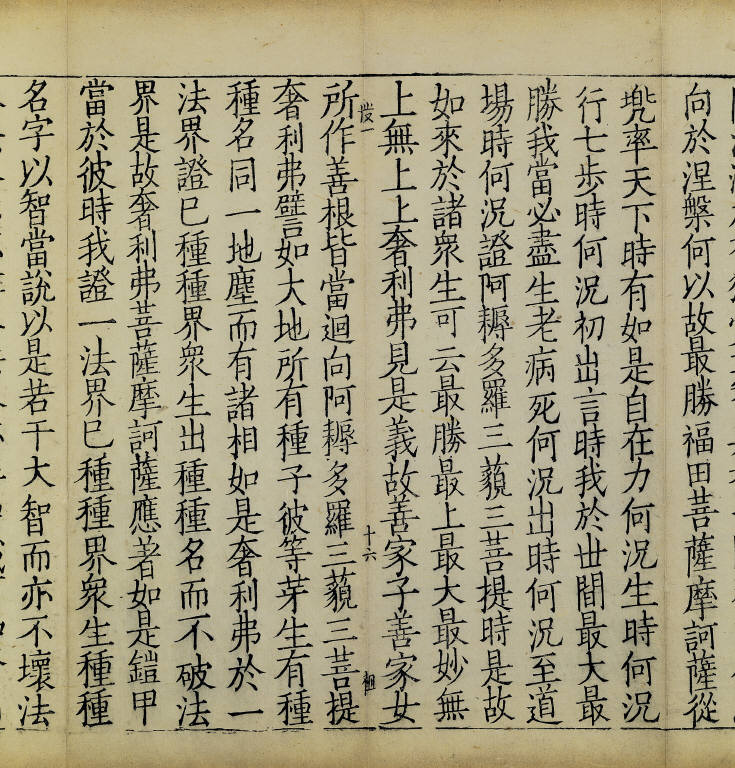 向於涅槃何以故最勝福田菩薩摩訶薩從
兠率天下時有如是自在力何況生時何況
行七步時何況初出言時我於世間最大最
勝我當必盡生老病死何況出時何況至道
場時何況證阿耨多羅三藐三菩提時是故
如來於諸衆生可云最勝最上最大最妙無
上無上上奢利弗見是義故善家子善家女
十六
所作善根皆當迴向阿耨多羅三藐三菩提
奢利弗譬如大地所有種子彼等芽生有種
種名同一地塵而有諸相如是奢利弗於一
法界證已種種界衆生出種種名而不破法
界是故奢利弗菩薩摩訶薩應著如是鎧甲
當於彼時我證一法界已種種界衆生種種
名字以智當說以是若干大智而亦不壞法